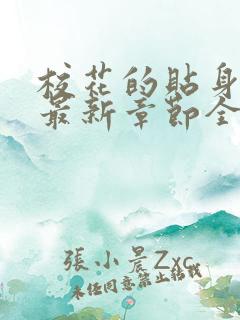 校花的貼身
最新章節全
張小晨Zxc
未经同意禁止转载